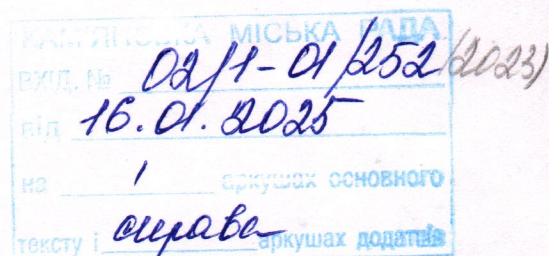 КАМ'ЯНСЬКА МІСЬКА РАДА
ВХІД. № 02/1-01/252 (2023)
від 16.01.2025
на 1 аркушах основного
тексту і справа аркушах додатків